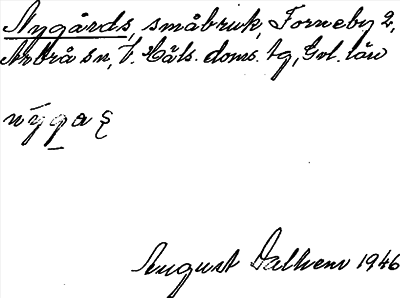 Nygårds, småbruk, Forneby 2,
Arbrå sn, V. Häls. doms. tg, Gvl. län
nýgaṣ
August Dalhem 1946